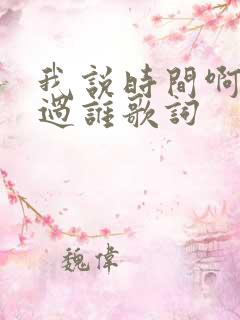 我說時間啊
過誰歌詞
魏偉